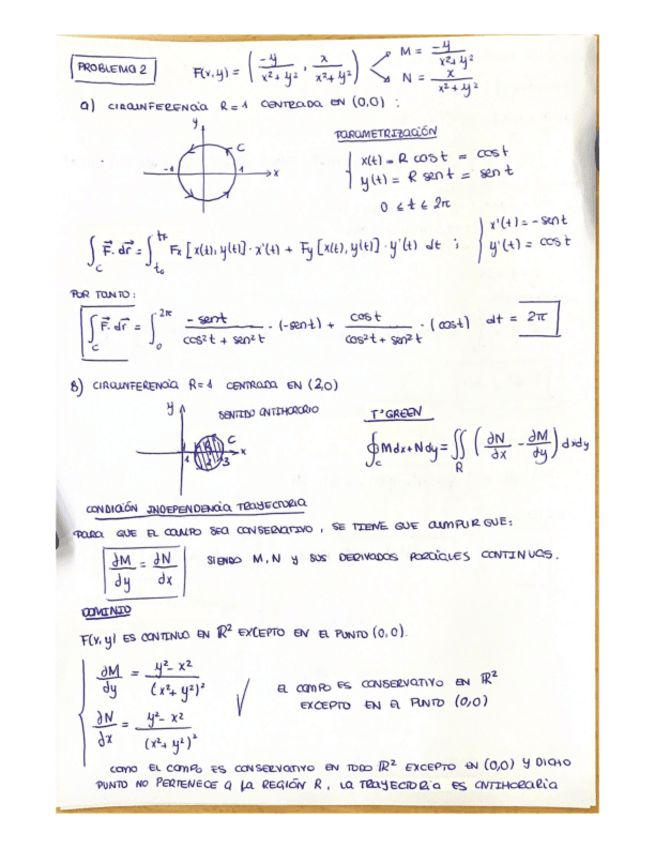 PROBLEMA 2
F(x,y) = ( -y / x²+y² , x / x²+y² ) M = -y / x²+y²
N = x / x²+y²
a) CIRCUNFERENCIA R=1 CENTRADA EN (0,0) :
y
C
-1 1 x
PARAMETRIZACIÓN
x(t) = R cos t = cos t
y(t) = R sen t = sen t
0 ≤ t ≤ 2π
∫_C F⃗·dr⃗ = ∫_{t₀}^{t_F} Fx [x(t), y(t)]·x'(t) + Fy [x(t), y(t)]·y'(t) dt ;
x'(t) = -sen t
y'(t) = cos t
POR TANTO:
∫_C F⃗·dr⃗ = ∫_0^{2π} -sen t / cos²t + sen²t · (-sen t) + cos t / cos²t + sen²t · (cos t) dt = 2π
B) CIRCUNFERENCIA R=1 CENTRADA EN (2,0)
y
SENTIDO ANTIHORARIO
C
1 3 x
Tª GREEN
∮_C Mdx+Ndy = ∬_R ( ∂N/∂x - ∂M/dy ) dxdy
CONDICIÓN INDEPENDENCIA TRAYECTORIA
PARA QUE EL CAMPO SEA CONSERVATIVO, SE TIENE QUE CUMPLIR QUE:
∂M/dy = ∂N/dx SIENDO M, N Y SUS DERIVADAS PARCIALES CONTINUAS.
DOMINIO
F(x,y) ES CONTINUO EN ℝ² EXCEPTO EN EL PUNTO (0,0).
∂M/dy = y²-x² / (x²+y²)²
∂N/∂x = y²-x² / (x²+y²)²
√ EL CAMPO ES CONSERVATIVO EN ℝ²
EXCEPTO EN EL PUNTO (0,0)
COMO EL CAMPO ES CONSERVATIVO EN TODO ℝ² EXCEPTO EN (0,0) Y DICHO
PUNTO NO PERTENECE A LA REGIÓN R, LA TRAYECTORIA ES ANTIHORARIA